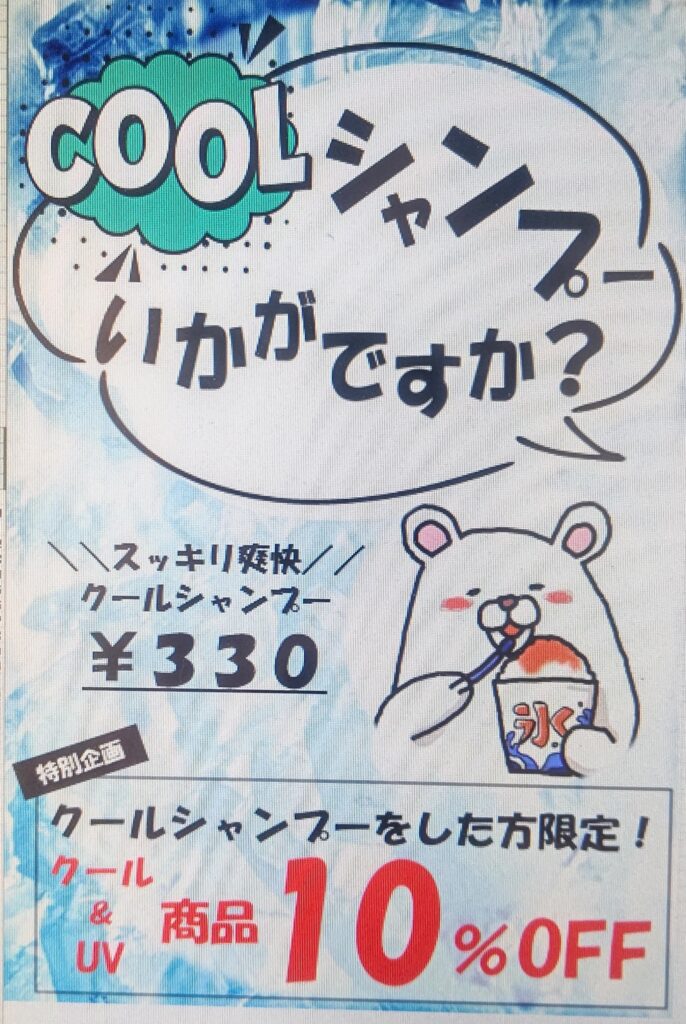 COOL
シャンプー
いかがですか?
\\スッキリ爽快//
クールシャンプー
¥330
氷
特別企画
クールシャンプーをした方限定!
クール
&
UV
商品
10%OFF